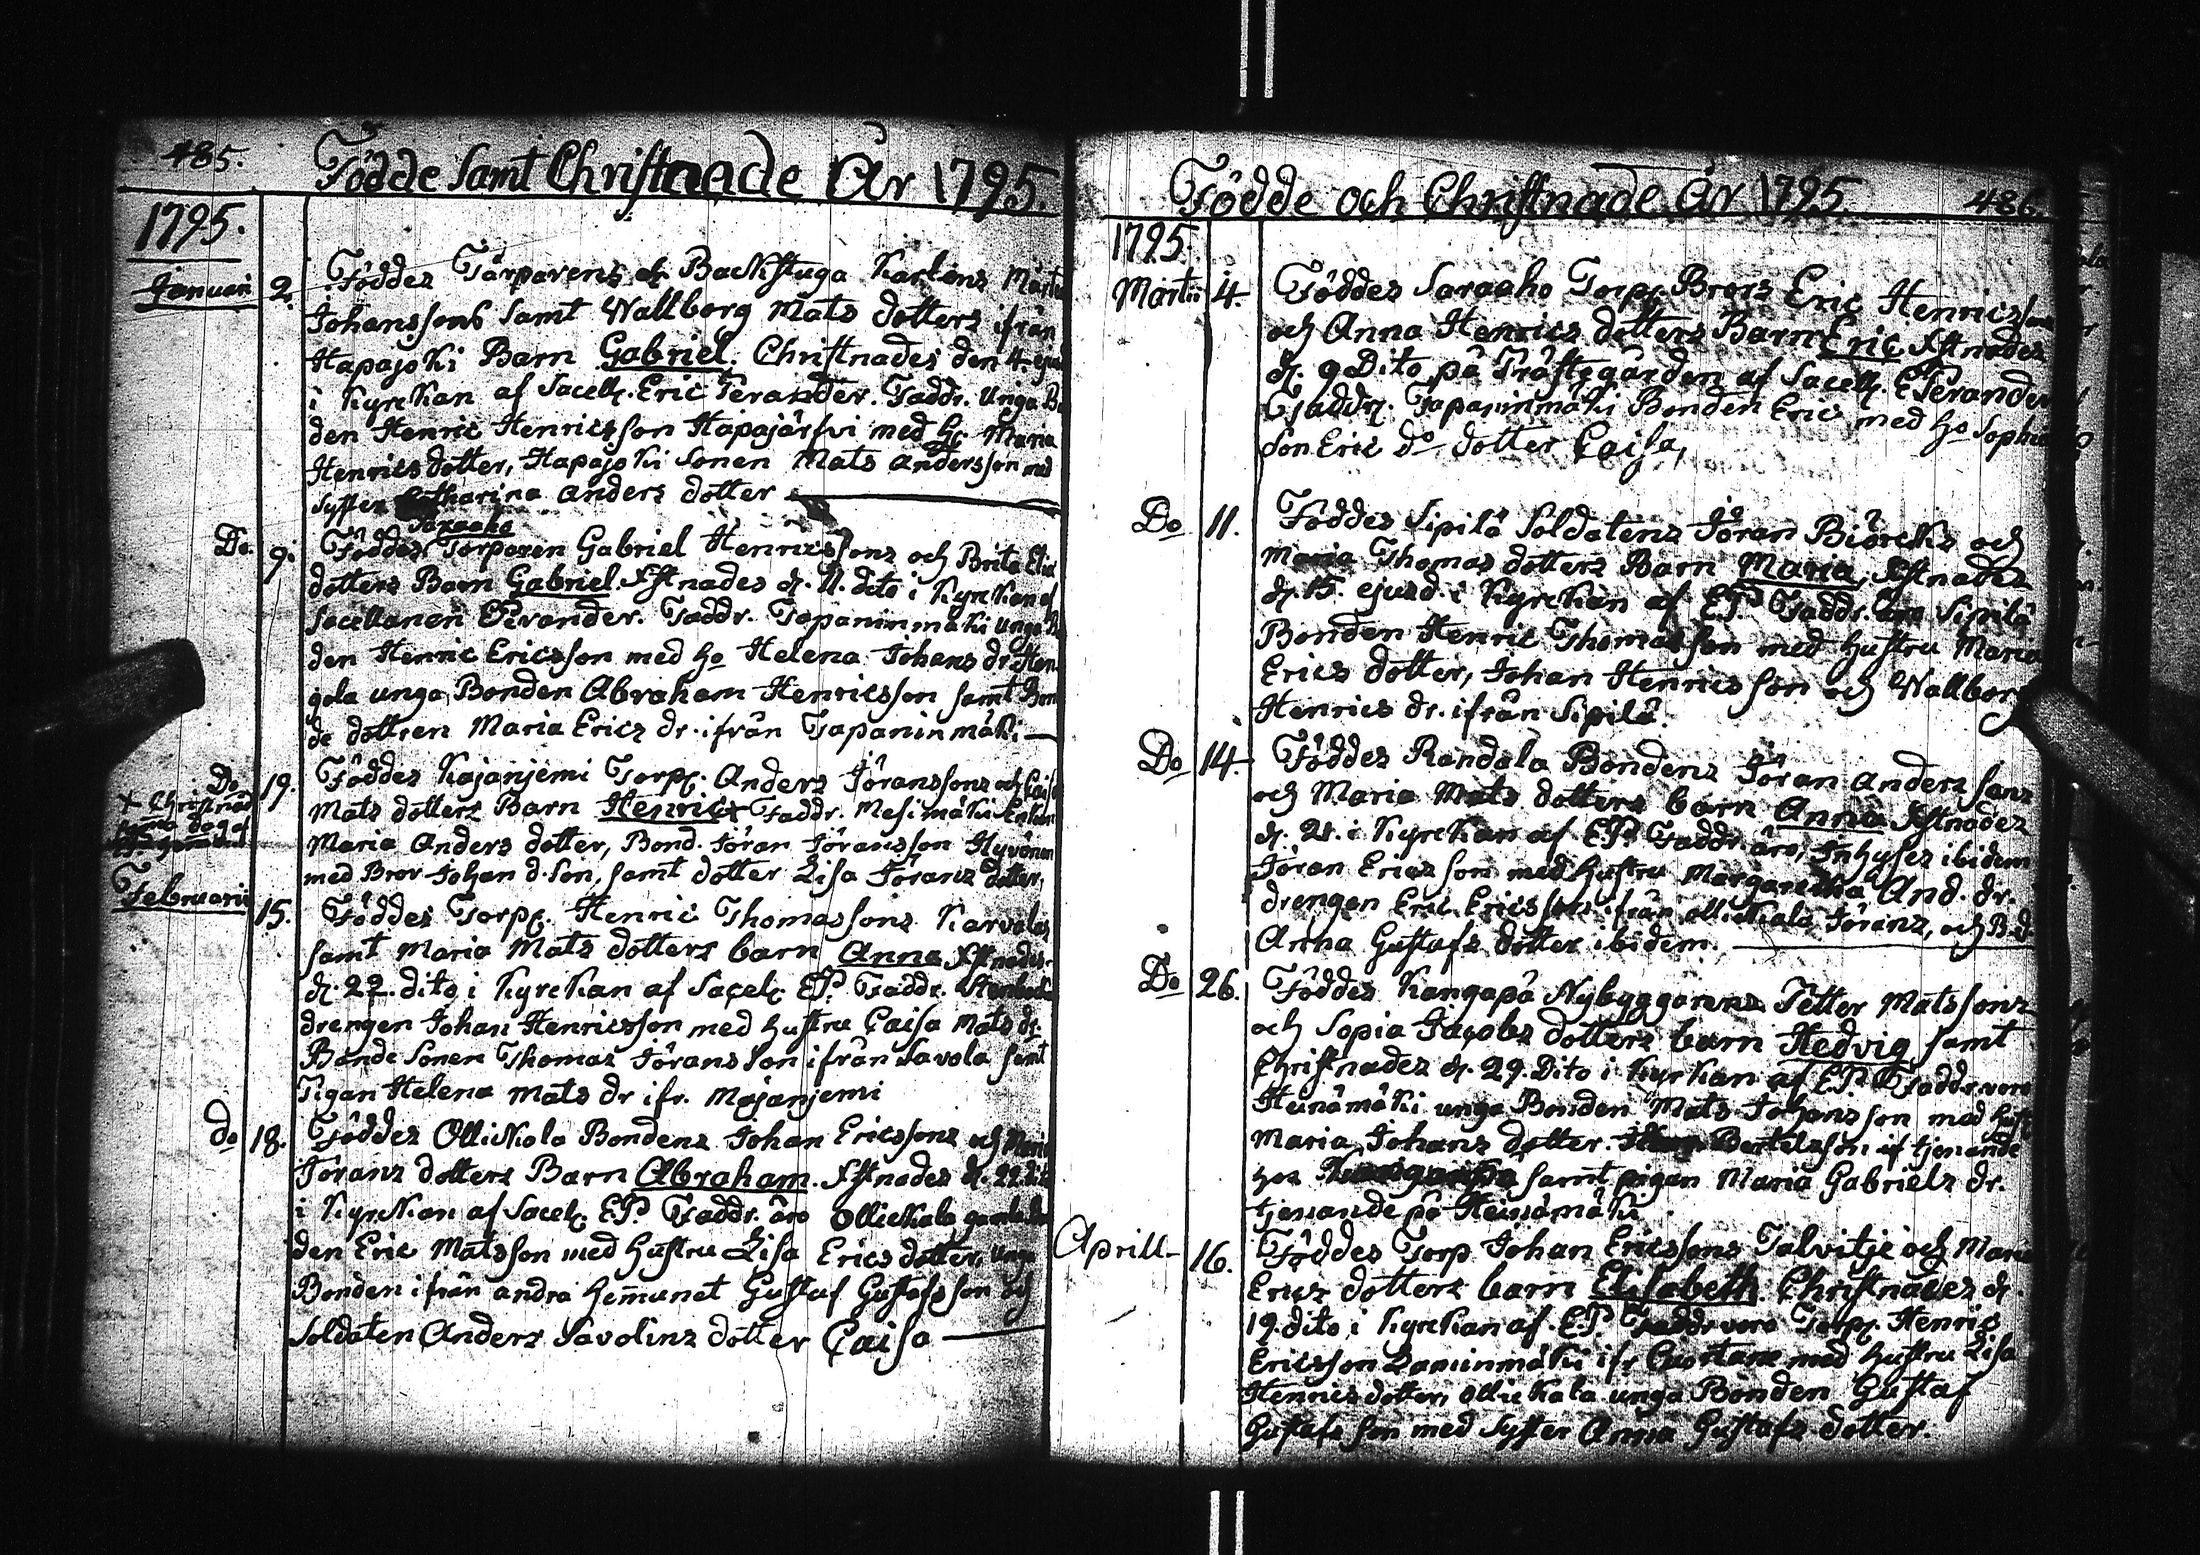 485. Födde samt Christnade År 1795.
1795.
Januari 2. Föddes Torparens och Backstuga Karlens Mårten
Johanssons samt Wallborg Mats dotters ifrån
Hapajoki Barn Gabriel. Christnades den 4. ejusd
i Kyrckan af Sacell. Eric Perander. Faddr. Unga Bon
den Henric Henricsson Hapajärfvi med H. Maria
Henrics dotter, Hapajoki Sonen Mats Andersson med
Syster Catharina Anders dotter
Saraaho
Do. 9. Föddes Torparen Gabriel Henricssons och Brita Eliæ
dotters Barn Gabriel. Xstnades d. 11. dito i Kyrckan af
Sacellanen EPerander. Faddr. Tapaninmäki unga Bon
den Henric Ericsson med Ho Helena Johans dr.
gola unga Bonden Abraham Henricsson samt Bon
de dottren Maria Erics dr. ifrån Tapaninmäki
Do 19. Föddes Kajanjemi Torp. Anders Jöranssons och Caisa
+ Christnad
samma dag af
Mats dotters Barn Henric + Faddr. Mesimäki Enkan
Maria Anders dotter, Bond. Jöran Jöransson Hyvönen
med Bror Johan d. Son, samt dotter Lisa Jörans dotter,
Februarii 15. Föddes Torp. Henric Thomassons Karvala
samt Maria Mats dotters barn Anna Xstnades
d. 22. dito i Kyrckan af Sacel. EP. Faddr.
drengen Johan Henricsson med hustru Caisa Mats dr.
Bonde Sonen Thomas Jöransson ifrån Savola samt
Pigan Helena Mats dr ifr. Majanjemi
do 18. Föddes Ollickala Bondens Johan Ericssons och Maria
Jörans dotters Barn Abraham. Xstnades d. 22 dito
i Kyrckan af Sacel. EP. Faddr. äro Ollickala gamla Bon
den Eric Matsson med Hustru Lisa Erics dotter, unga
Bonden ifrån andra hemanet Gustaf Gustafsson och
Soldaten Anders Savolins dotter Caisa
Födde och Christnade År 1795 486.
1795.
Martii 4. Föddes Saraaho Torp. Brors Eric Henricssons
och Anna Henrics dotters Barn Eric Xstnades
d. 9 Dito på Prästegården af Sacell. EPerander
Faddr. Tapaninmäki Bonden Eric med Ho Sophia
Son Eric do dotter Caisa,
Do 11. Föddes Sipilä Soldatens Jöran Biörcks och
Maria Thomas dotters Barn Maria, Xstnades
d. 15. ejusd. i Kyrckan af EP. Faddr. äro Sipilä
Bonden Henric Thomasson med Hustru Maria
Erics dotter, Johan Henricsson och Wallborg
Henrics dr. ifrån Sipilä.
Do 14. Föddes Randala Bondens Jöran Anders sons
och Maria Mats dotters barn Anna Xstnades
d. 21. i Kyrckan af EP. Faddr. äro, Inhyses ibidem
Jöran Ericsson med Hustru Margaretha And. dr.
drengen Eric Ericsson ifrån Ollickala Jörans, och B.d
Anna Gustafs dotter ibidem.
Do 26. Föddes Kangapä Nybyggarens Petter Matssons
och Sopia Jacobs dotters barn Hedvig samt
Christnades d. 29. Dito i Kyrkan af EP. Faddr. voro
Heinämäki unga Bonden Mats Johansson med Hust.
Maria Johans dotter. Bertelsson tjenande
hos samt pigan Maria Gabriels dr.
tjenande på Heinämäki.
Aprill 16. Föddes Torp Johan Ericssons Talvitje och Maria
Erics dotters barn Elisabeth. Christnades d.
19. dito i Kyrckan af EP. Faddr voro Torp. Henric
Ericsson ifr med hustru Lisa
Henrics dotter, Ollickala unga Bonden Gustaf
Gustafsson med Syster Anna Gustafs dotter.